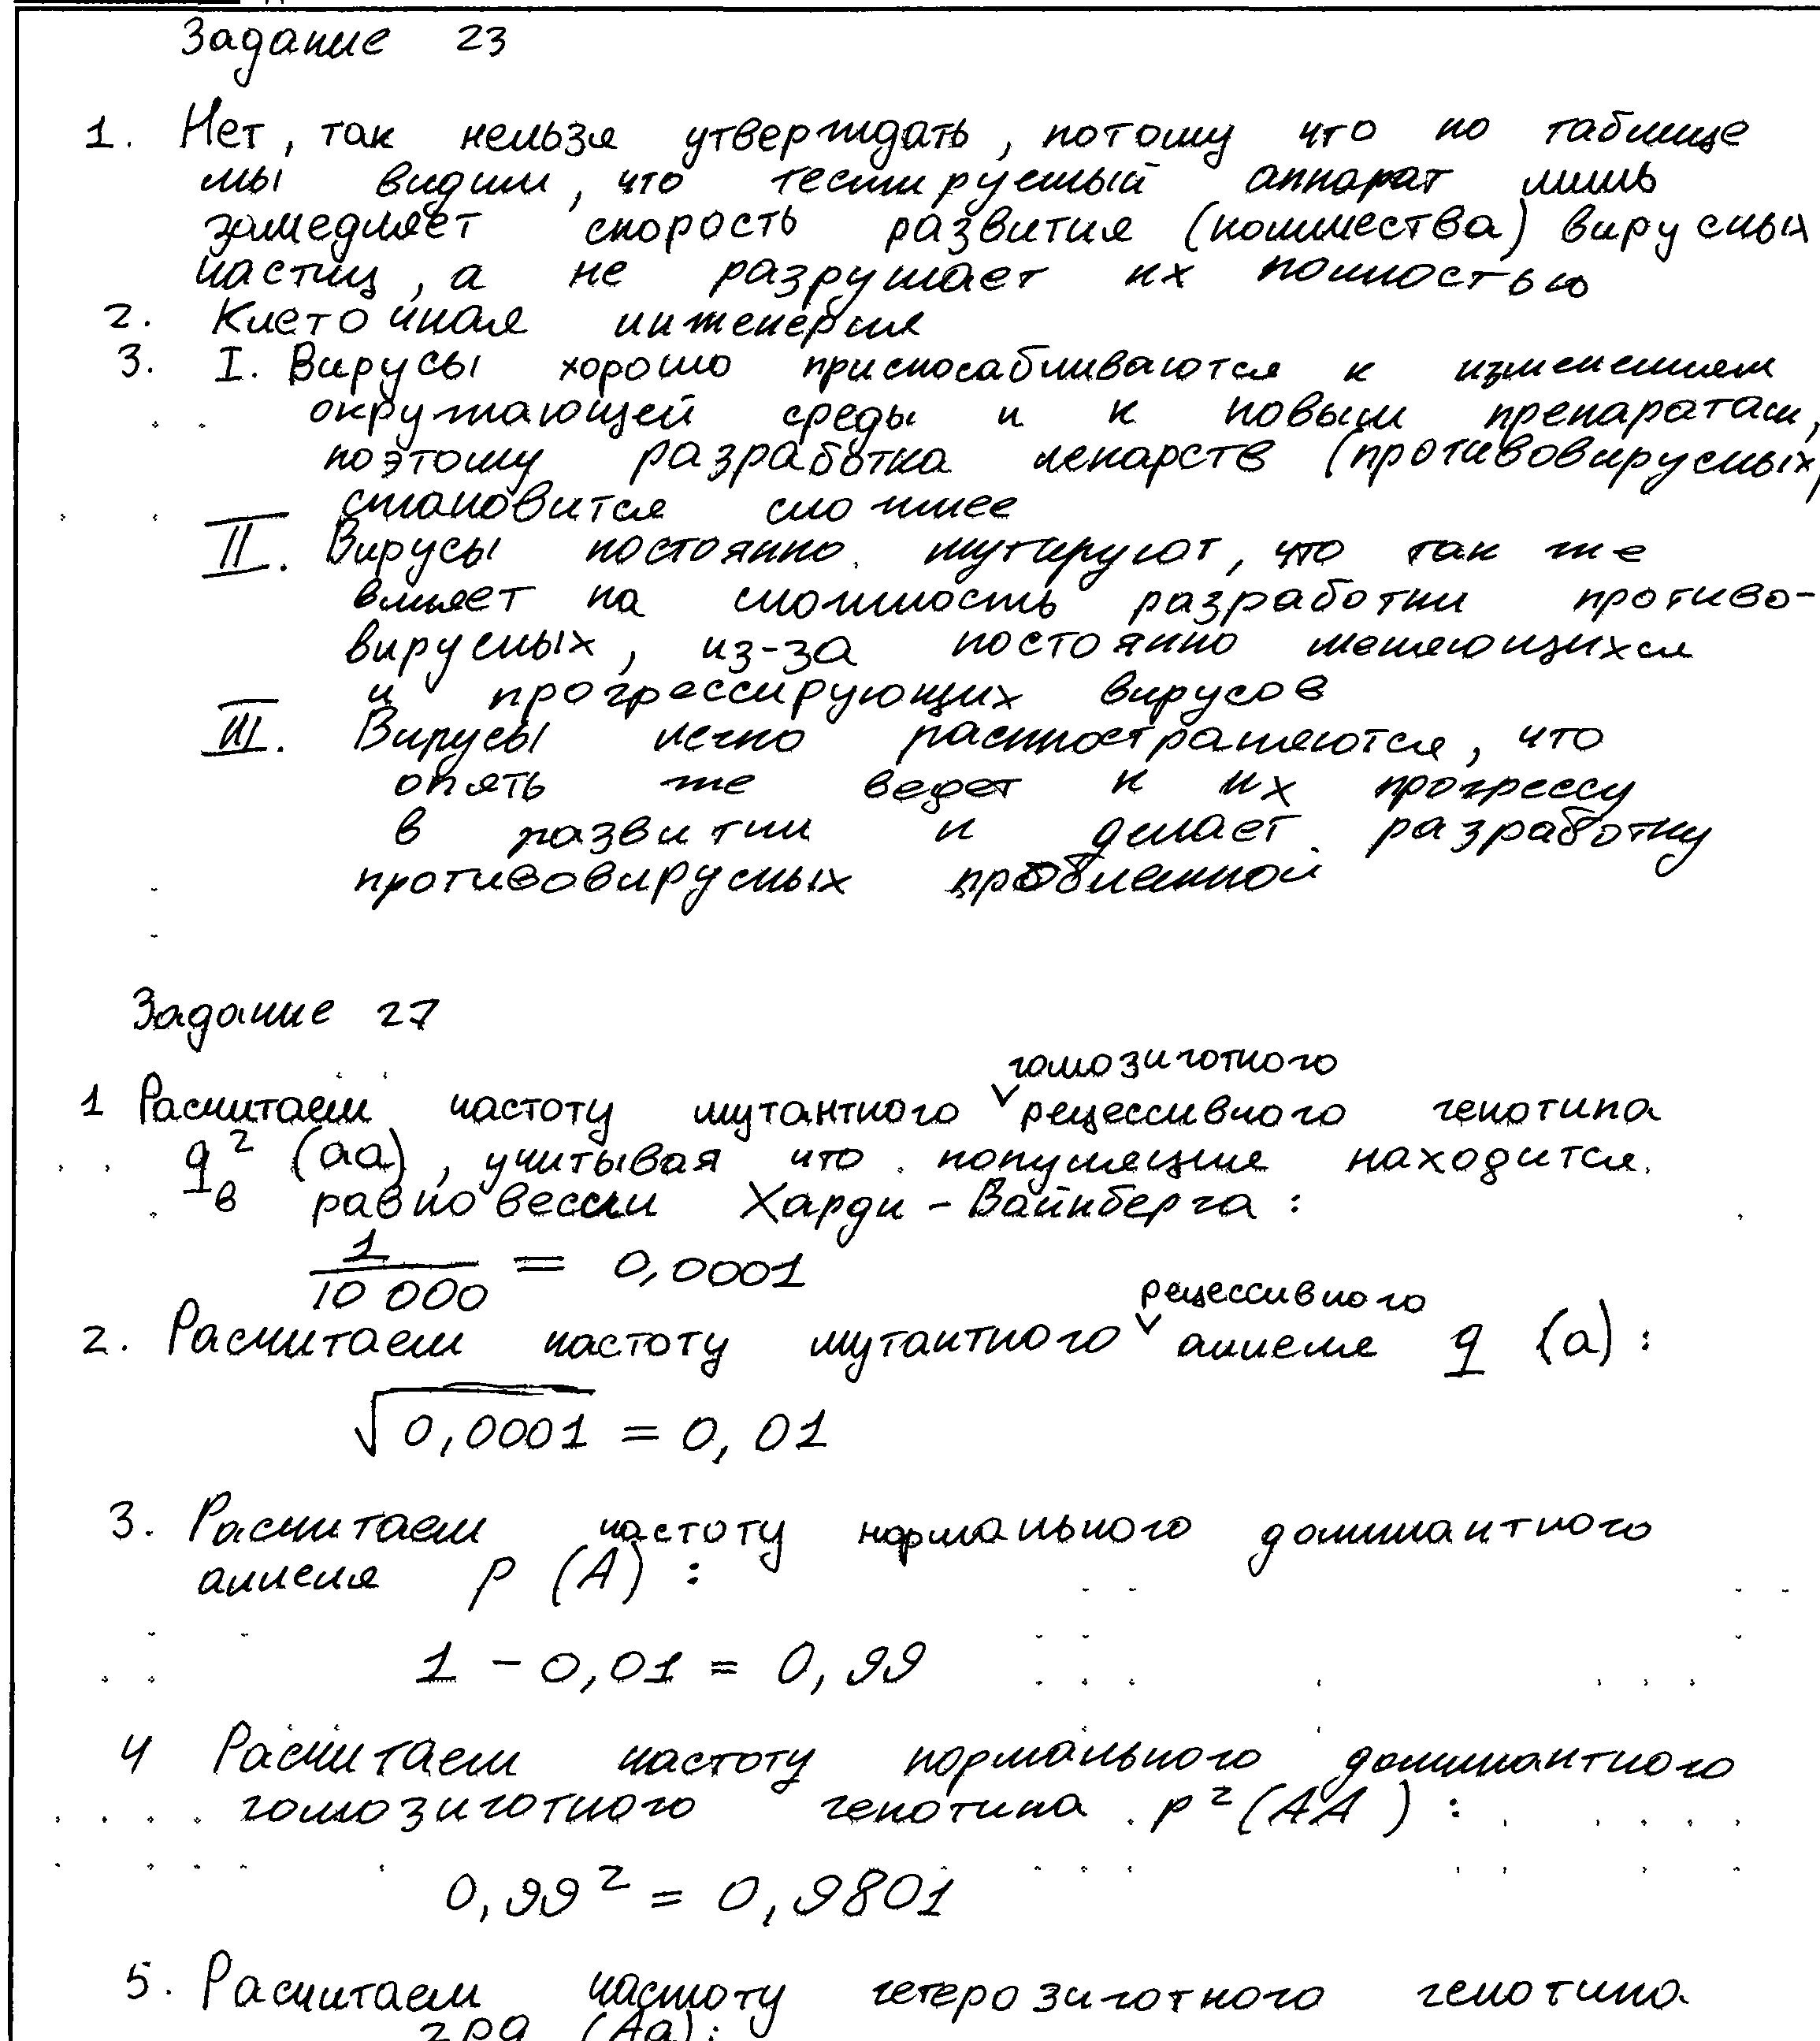 Задание 23
1. Нет, так нельзя утверждать, потому что по таблице
мы видим, что тестируемый аппарат лишь
замедляет скорость развития (количества) вирусных
частиц, а не разрушает их полностью
2. Клеточная инженерия
3. I. Вирусы хорошо приспосабливаются к изменениям
окружающей среды и к новым препаратам,
поэтому разработка лекарств (противовирусных)
становится сложнее
II. Вирусы постоянно мутируют, что так же
влияет на сложность разработки противо-
вирусных, из-за постоянно меняющихся
и прогрессирующих вирусов
III. Вирусы легко распространяются, что
опять же ведет к их прогрессу
в развитии и делает разработку
противовирусных проблемной
Задание 27
гомозиготного
1 Расчитаем частоту мутантного ˅ рецессивного генотипа
q² (aa), учитывая что популяция находится
в равновесии Харди-Вайнберга:
1/10 000 = 0,0001
рецессивного
2. Расчитаем частоту мутантного ˅ аллеля q (a):
√0,0001 = 0,01
3. Расчитаем частоту нормального доминантного
аллеля p (A):
1 - 0,01 = 0,99
4 Расчитаем частоту нормального доминантного
гомозиготного генотипа p² (AA):
0,99² = 0,9801
5. Расчитаем частоту гетерозиготного генотипа
2pq (Aa):